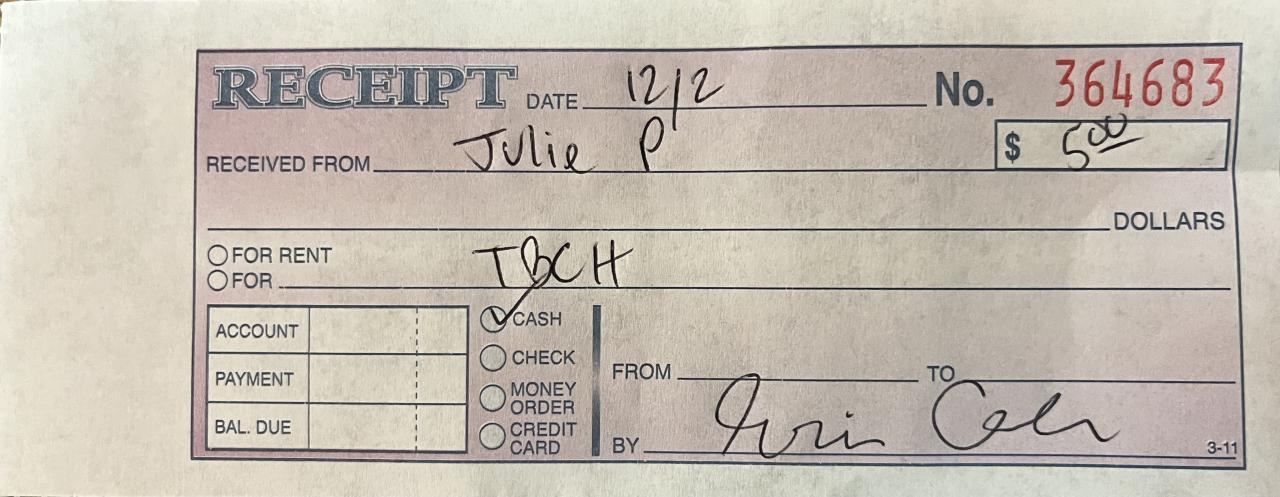 RECEIPT DATE 12/2 No. 364683
RECEIVED FROM Julie P $ 5 00
DOLLARS
FOR RENT
FOR TBCH
ACCOUNT
PAYMENT
BAL. DUE
CASH
CHECK
MONEY ORDER
CREDIT CARD
FROM TO
BY
3-11